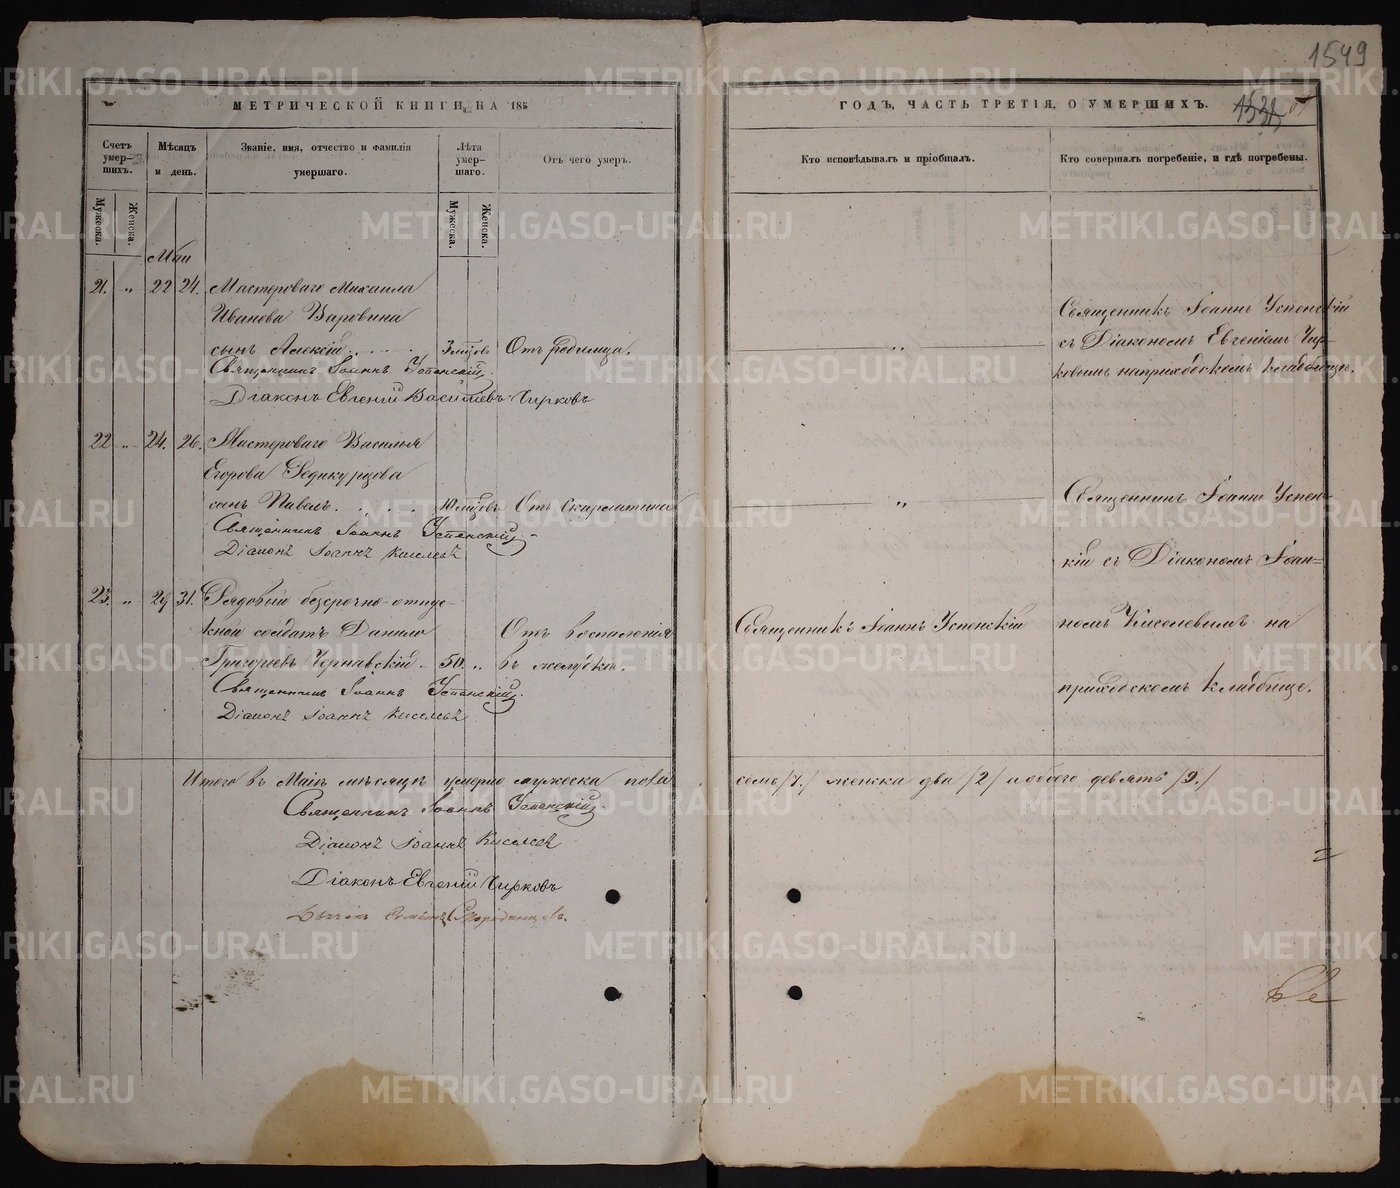 1549
МЕТРИЧЕСКОЙ КНИГИ, НА 185
ГОДЪ, ЧАСТЬ ТРЕТІЯ, О УМЕРШИХЪ.
Счетъ умер-шихъ.
Мѣсяцъ и день.
Званіе, имя, отчество и фамилія умершаго.
Лѣта умер-шаго.
Отъ чего умеръ.
Кто исповѣдывалъ и пріобщалъ.
Кто совершалъ погребеніе, и гдѣ погребены.
Мужеска.
Женска.
Мужеска.
Женска.
Маи
21. " 22 24. Мастероваго Михаила
Иванова Варовина
сынъ Алексій 3 мѣсцов Отъ родимца.
Священникъ Іоаннъ Успенскій
Діаконъ Евгеній Васильевъ Чирковъ
"
Священникъ Іоаннъ Успенскій
съ Діакономъ Евгеніемъ Чир-
ковымъ на приходскомъ кладбищѣ.
22 " 24. 26. Мастероваго Василья
Егорова Редикурцова
сынъ Павелъ 10 мѣсцовъ Отъ скарлатины
Священникъ Іоаннъ Успенскій
Діаконъ Іоаннъ Киселевъ
"
Священникъ Іоаннъ Успен-
кій съ Діакономъ Іоан=
номъ Киселевымъ на
приходскомъ кладбище.
23. " 29 31. Рядовый безсрочно-отпу-
кной солдатъ Данило
Григорьевъ Чернавскій. 50. " Отъ воспаленія
въ желудкѣ.
Священникъ Іоаннъ Успенскій
Діаконъ Іоаннъ Киселевъ
Священникъ Іоаннъ Успенскій
Итого въ Маіѣ мѣсяцѣ умерло мужеска пола
семь /7./ женска два /2/ и обоего девять /9./
Священникъ Іоаннъ Успенскій
Діаконъ Іоаннъ Киселевъ
Діаконъ Евгеній Чирковъ
METRIKI.GASO-URAL.RU